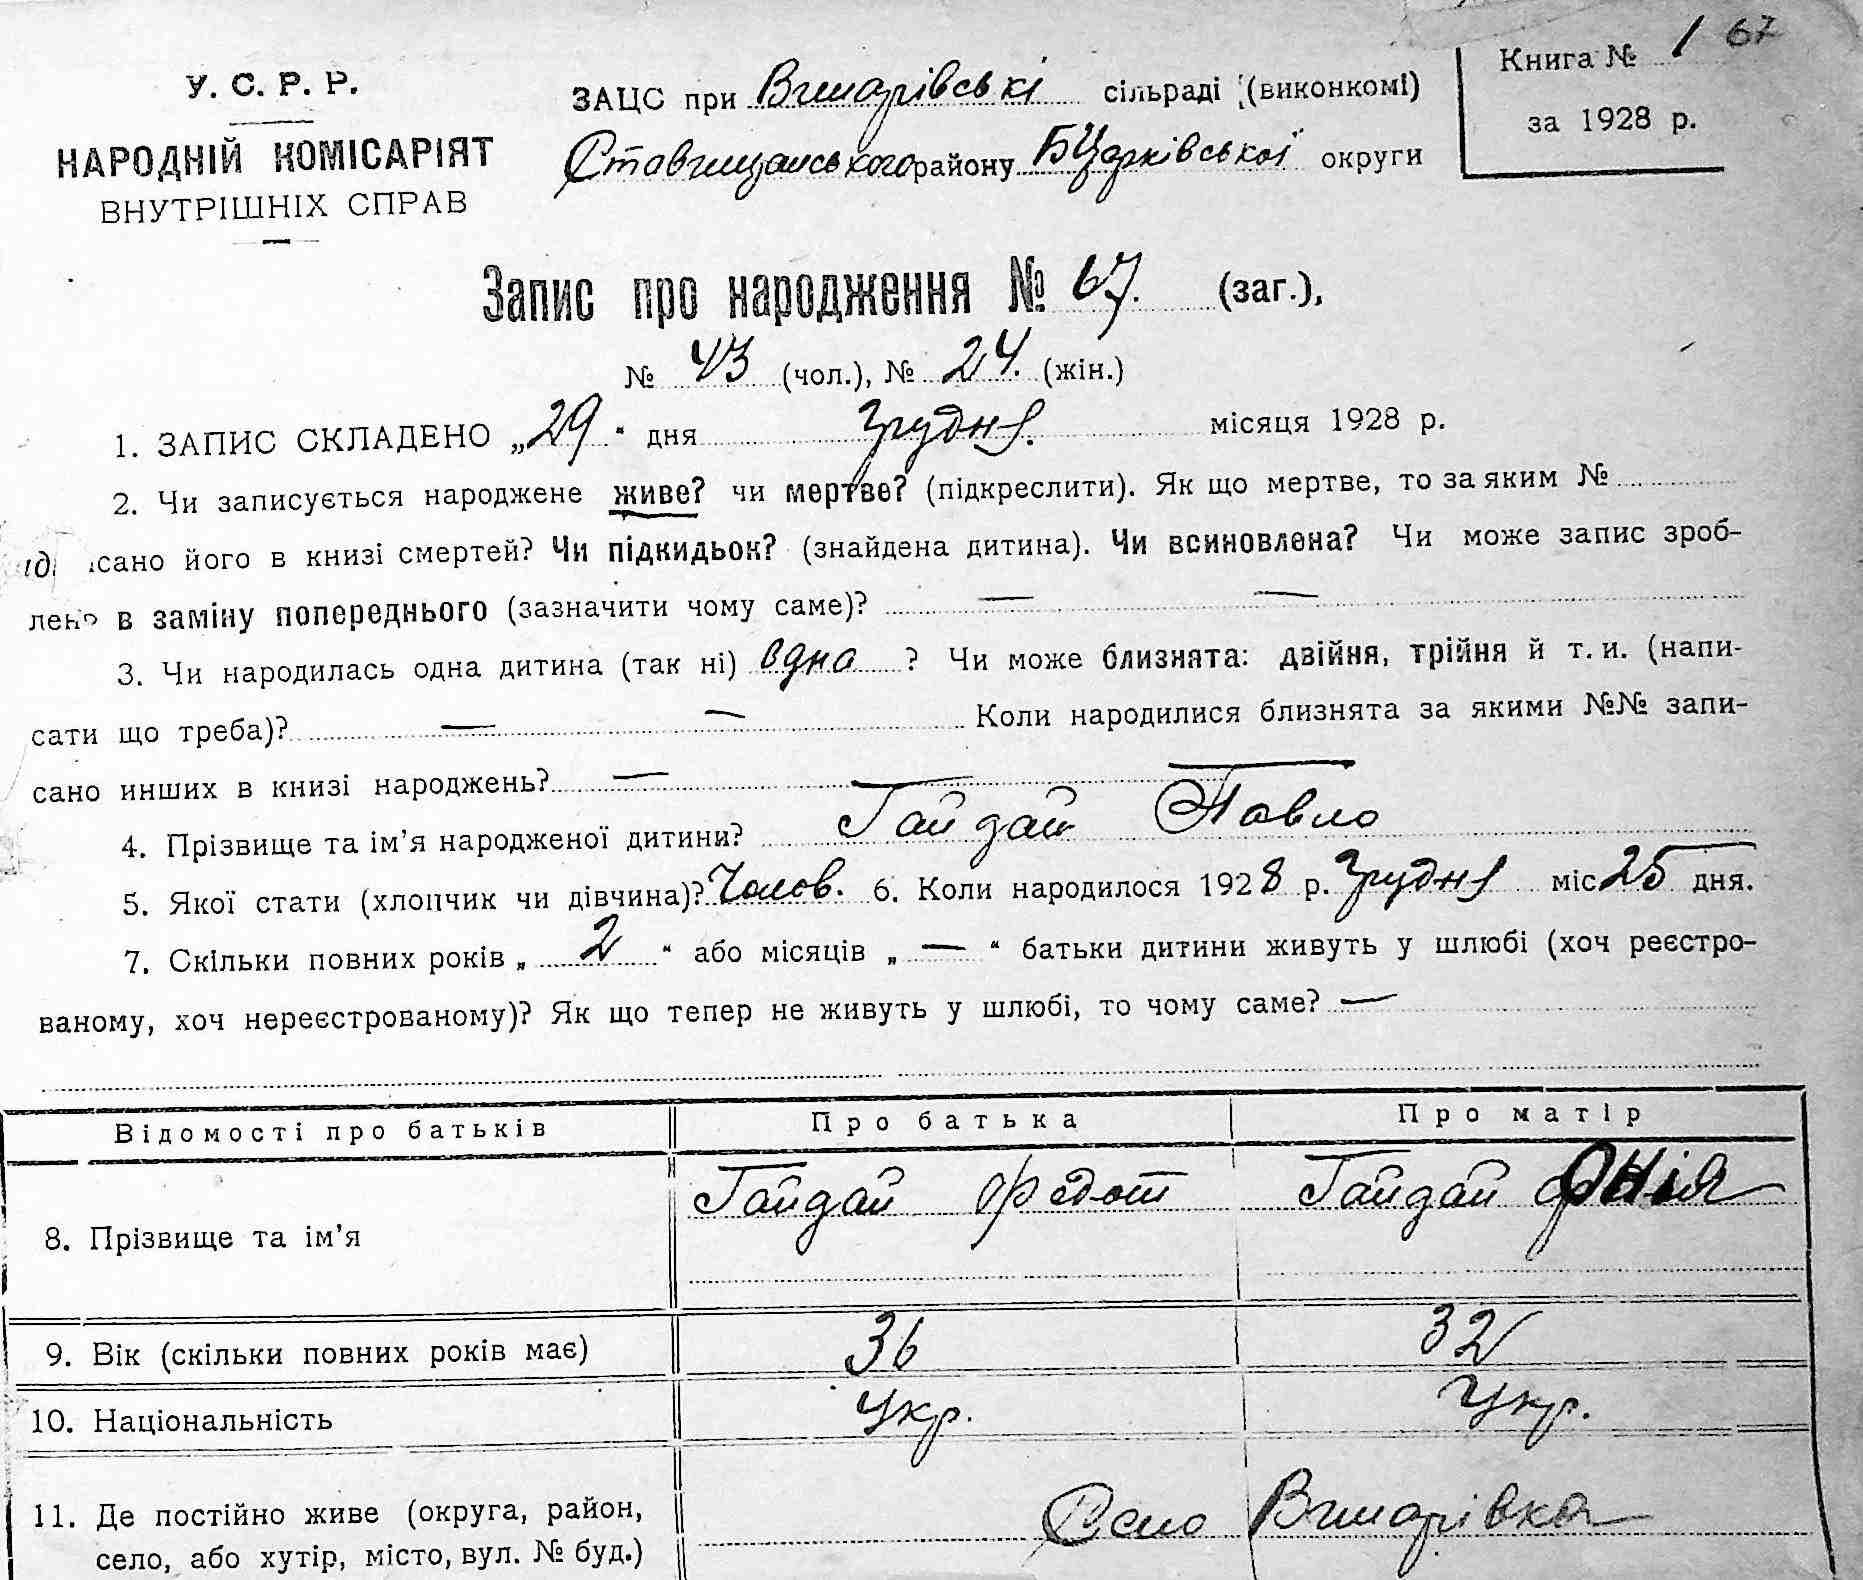 67
У. С. Р. Р.
НАРОДНІЙ КОМІСАРІЯТ
ВНУТРІШНІХ СПРАВ
ЗАЦС при сільраді (виконкомі)
Ставищанського району БЦерківської округи
Книга № 1
за 1928 р.
Запис про народження № 67. (заг.),
№ 43 (чол.), № 24. (жін.)
1. ЗАПИС СКЛАДЕНО „29“ дня Грудня. місяця 1928 р.
2. Чи записується народжене живе? чи мертве? (підкреслити). Як що мертве, то за яким №
сано його в книзі смертей? Чи підкидьок? (знайдена дитина). Чи всиновлена? Чи може запис зроб-
лено в заміну попереднього (зазначити чому саме)? — —
3. Чи народилась одна дитина (так ні) одна ? Чи може близнята: двійня, трійня й т. и. (напи-
сати що треба)? — — Коли народилися близнята за якими №№ запи-
сано инших в книзі народжень? —
4. Прізвище та ім’я народженої дитини? Гайдай Павло
5. Якої стати (хлопчик чи дівчина)? Чолов. 6. Коли народилося 1928 р. Грудня міс 25 дня.
7. Скільки повних років „ 2 “ або місяців „ — “ батьки дитини живуть у шлюбі (хоч реєстро-
ваному, хоч нереєстрованому)? Як що тепер не живуть у шлюбі, то чому саме? —
Відомості про батьків Про батька Про матір
8. Прізвище та ім’я Гайдай Федот Гайдай
9. Вік (скільки повних років має) 36 32
10. Національність Укр. Укр.
11. Де постійно живе (округа, район, Село
село, або хутір, місто, вул. № буд.)